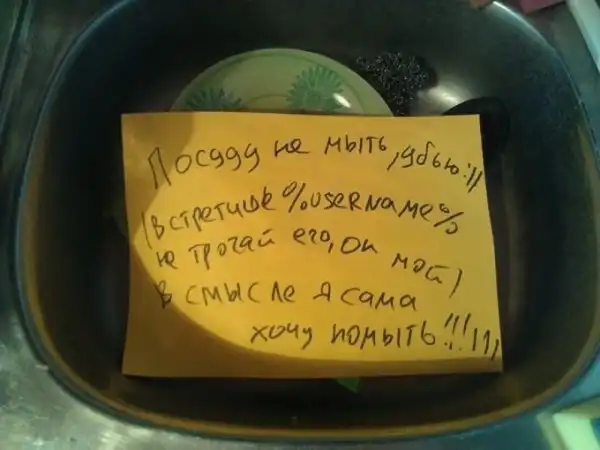 Посуду не мыть, убью!!
(встретишь %username%
не трогай его, он мой)
В смысле я сама
хочу помыть!!!!!!